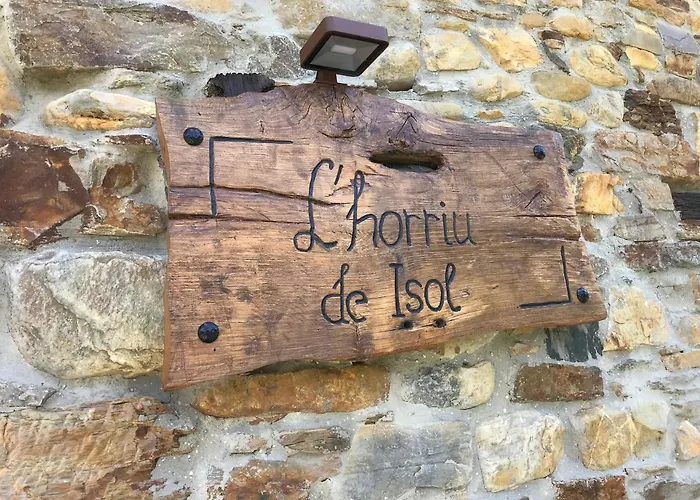 L'horriu
de Isol